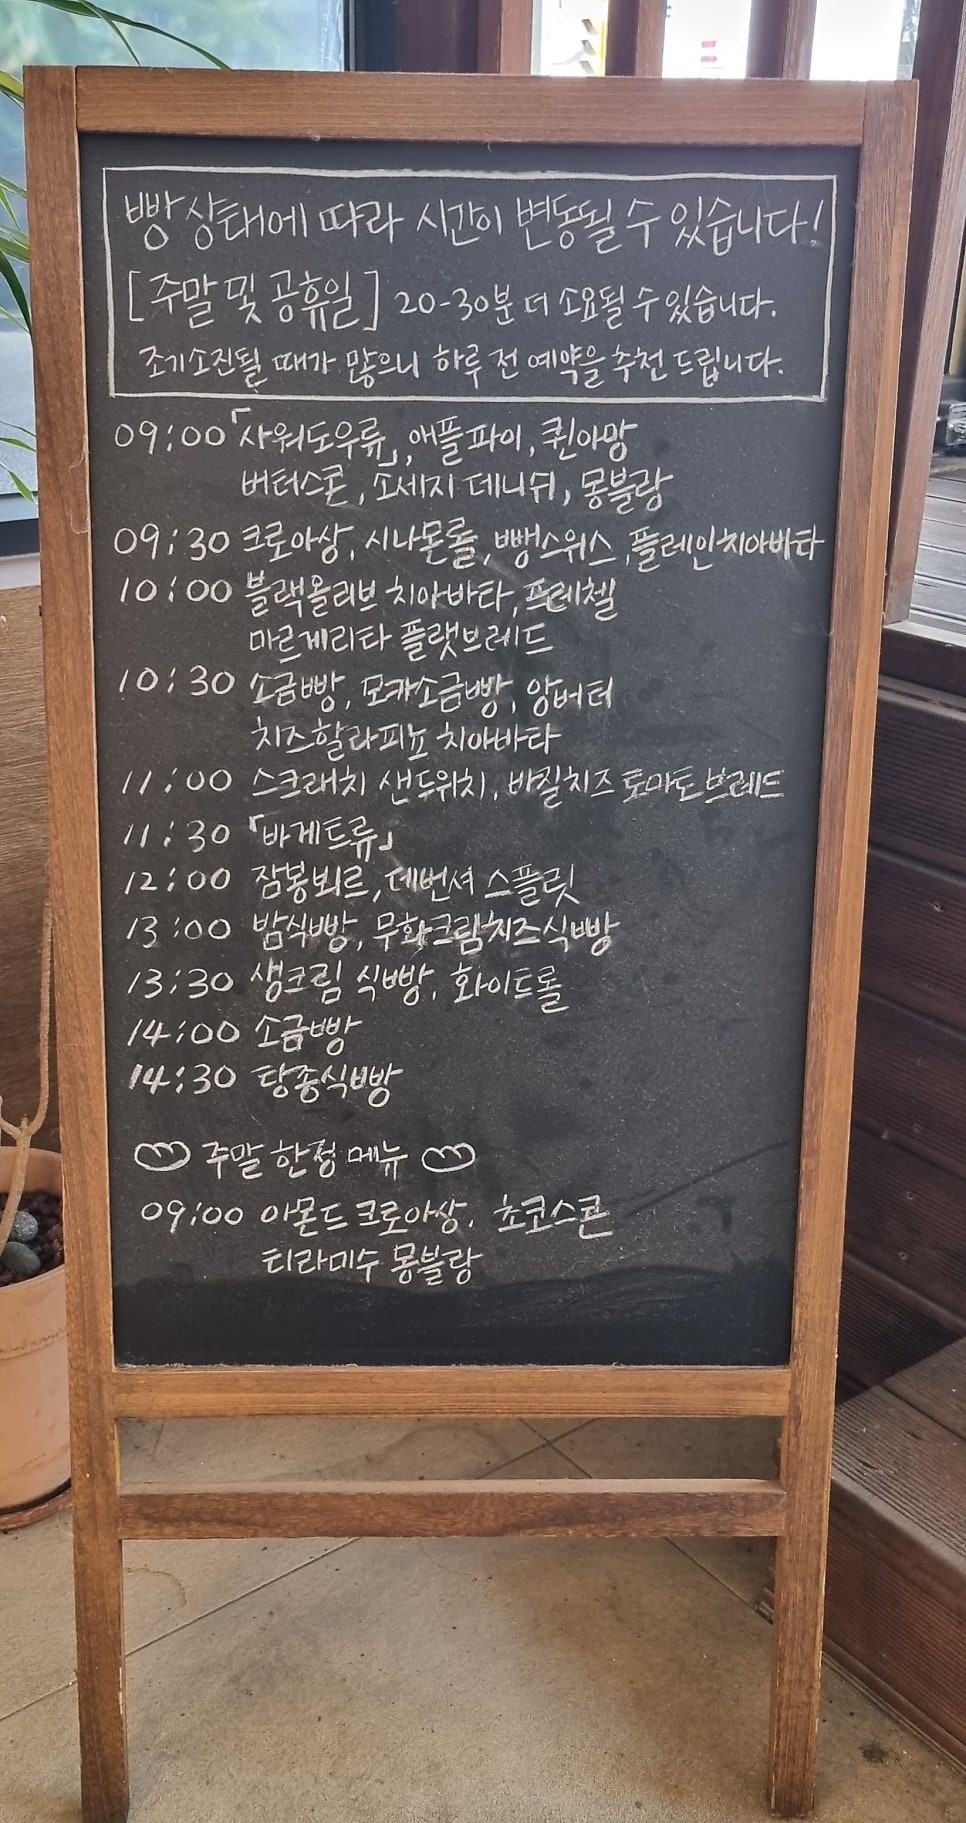 빵 상태에 따라 시간이 변동될 수 있습니다!
[주말 및 공휴일] 20-30분 더 소요될 수 있습니다.
조기소진될 때가 많으니 하루 전 예약을 추천드립니다.
09:00 「사워도우류」, 애플파이, 퀸아망
버터스콘, 소세지 데니쉬, 몽블랑
09:30 크로아상, 시나몬롤, 뺑스위스, 플레인치아바타
10:00 블랙올리브 치아바타, 프레첼
마르게리타 플랫브레드
10:30 소금빵, 모카소금빵, 앙버터
치즈할라피뇨 치아바타
11:00 스크래치 샌드위치, 바질치즈 토마토브레드
11:30 「바게트류」
12:00 잠봉뵈르, 데번셔 스플릿
13:00 밤식빵, 무화크림치즈식빵
13:30 생크림 식빵, 화이트롤
14:00 소금빵
14:30 탕종식빵
주말 한정 메뉴
09:00 아몬드 크로아상, 초코스콘
티라미수 몽블랑